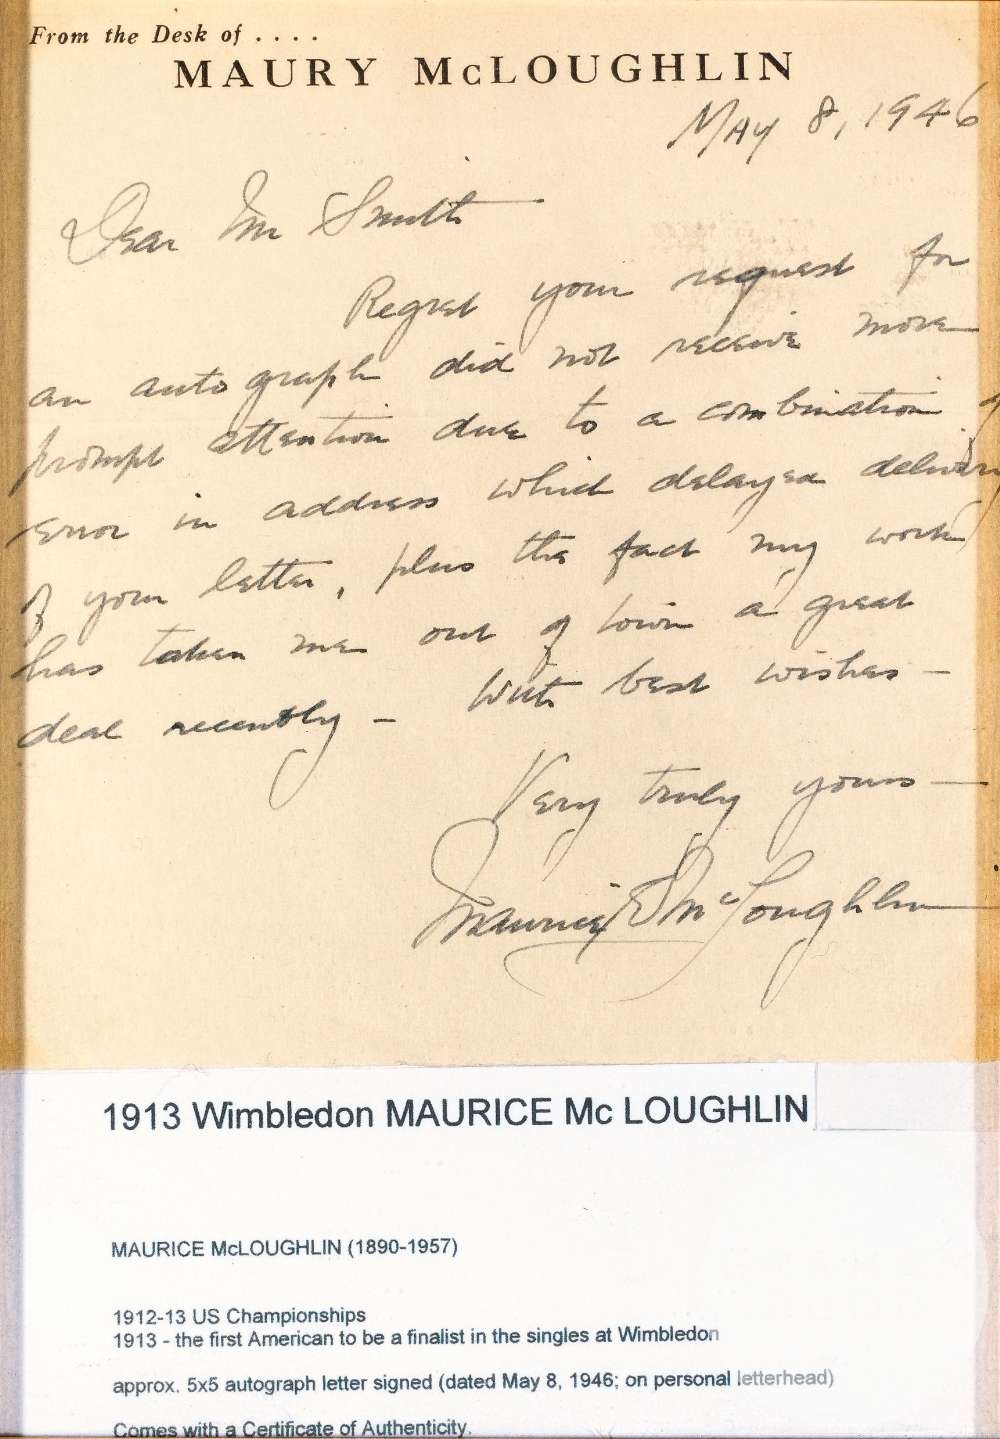 From the Desk of . . . .
MAURY McLOUGHLIN
May 8, 1946
Dear Mr Smith
Regret your request for
an autograph did not receive more
prompt attention due to a combination of
error in address which delayed delivery
of your letter, plus the fact my work
has taken me out of town a great
deal recently - With best wishes -
Very truly yours -
Maurice E McLoughlin
1913 Wimbledon MAURICE Mc LOUGHLIN
MAURICE McLOUGHLIN (1890-1957)
1912-13 US Championships
1913 - the first American to be a finalist in the singles at Wimbledon
approx. 5x5 autograph letter signed (dated May 8, 1946; on personal letterhead)
Comes with a Certificate of Authenticity.